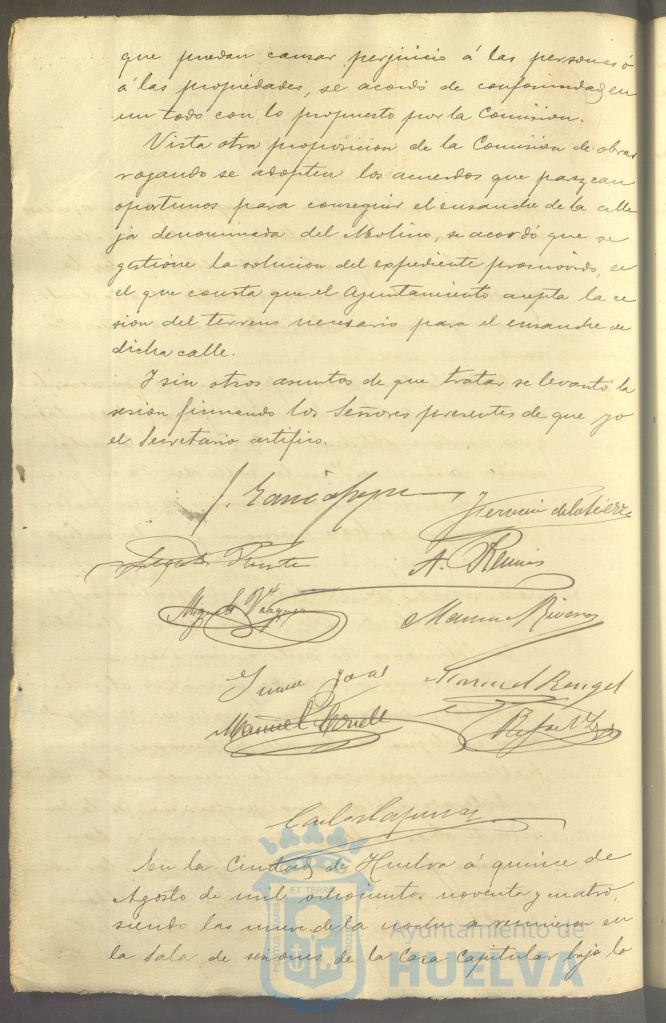 que puedan causar perjuicio á las personas ó
á las propiedades, se acordó de conformidad en
un todo con lo propuesto por la Comision.
Vista otra proposicion de la Comision de obras
rogando se adopten los acuerdos que parezcan
oportunos para conseguir el ensanche de la calle
ja denominada del Molino, se acordó que se
gestione la solucion del expediente promovido, en
el que consta que el Ayuntamiento acepta la ce
sion del terreno necesario para el ensanche de
dicha calle.
Y sin otros asuntos de que tratar se levantó la
sesion firmando los Señores presentes de que yo
el Secretario certifico.
J. Garcia
Fermin de la
A.
Miguel Vazquez
Manuel Rivero
Manuel Rangel
Manuel
Rafael
Carlos
En la Ciudad de Huelva á quince de
Agosto de mil ochocientos noventa y cuatro,
siendo las nueve de la noche se reunieron en
la Sala de sesiones de la Casa Capitular bajo la
PORTUS MARIS ET TERRÆ CUSTODIA
Ayuntamiento de
HUELVA